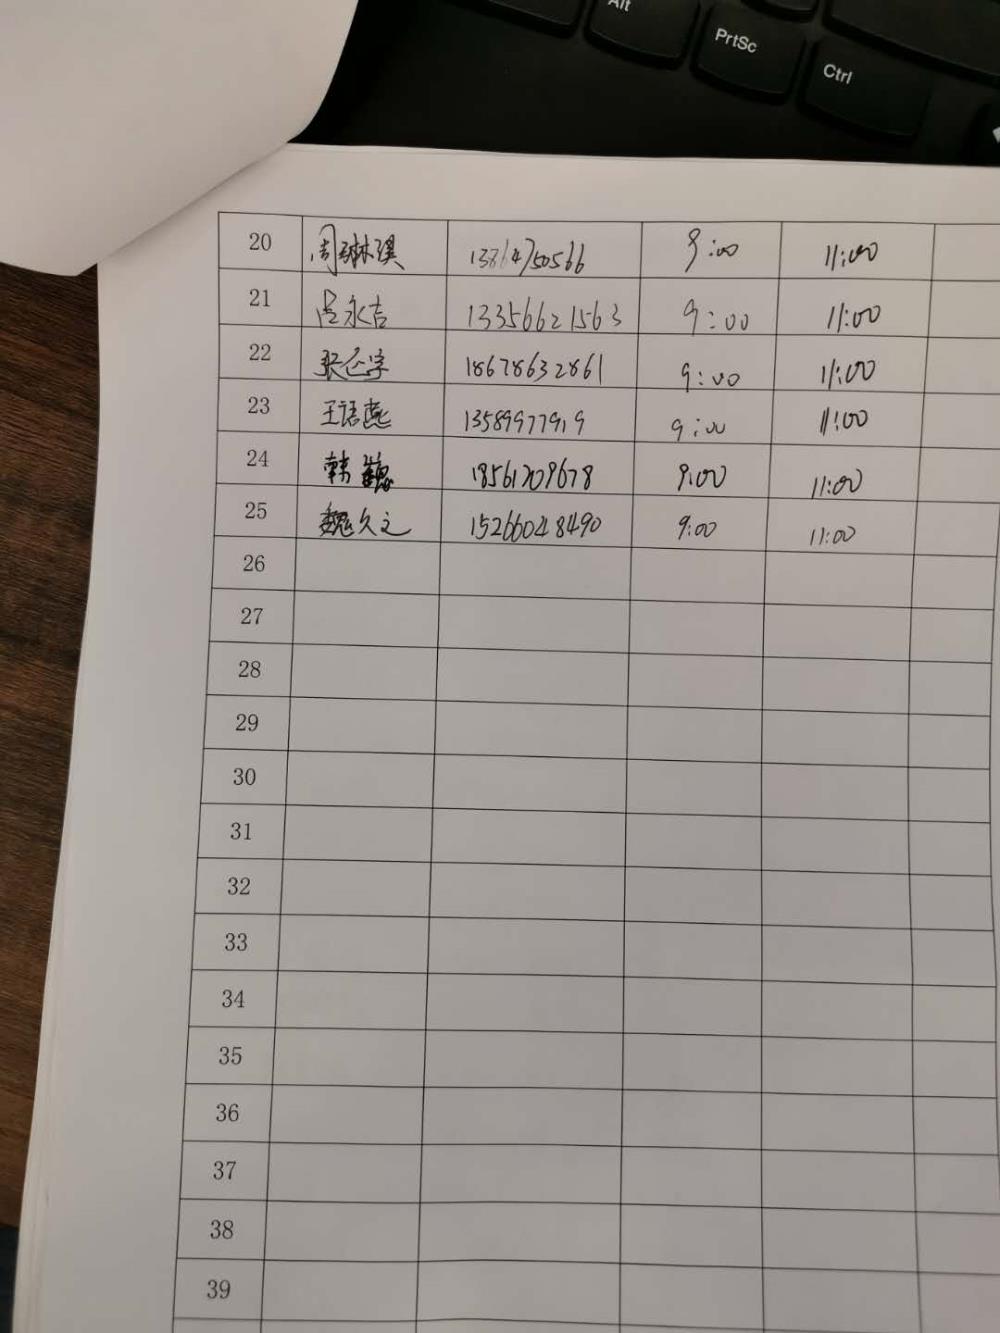 Alt
PrtSc
Ctrl
20 周琳淇 13864750566 9:00 11:00
21 吕永吉 13356621563 9:00 11:00
22 18678632861 9:00 11:00
23 王语燕 13589977919 9:00 11:00
24 韩巍 18561209678 9:00 11:00
25 魏久之 15266048490 9:00 11:00
26
27
28
29
30
31
32
33
34
35
36
37
38
39